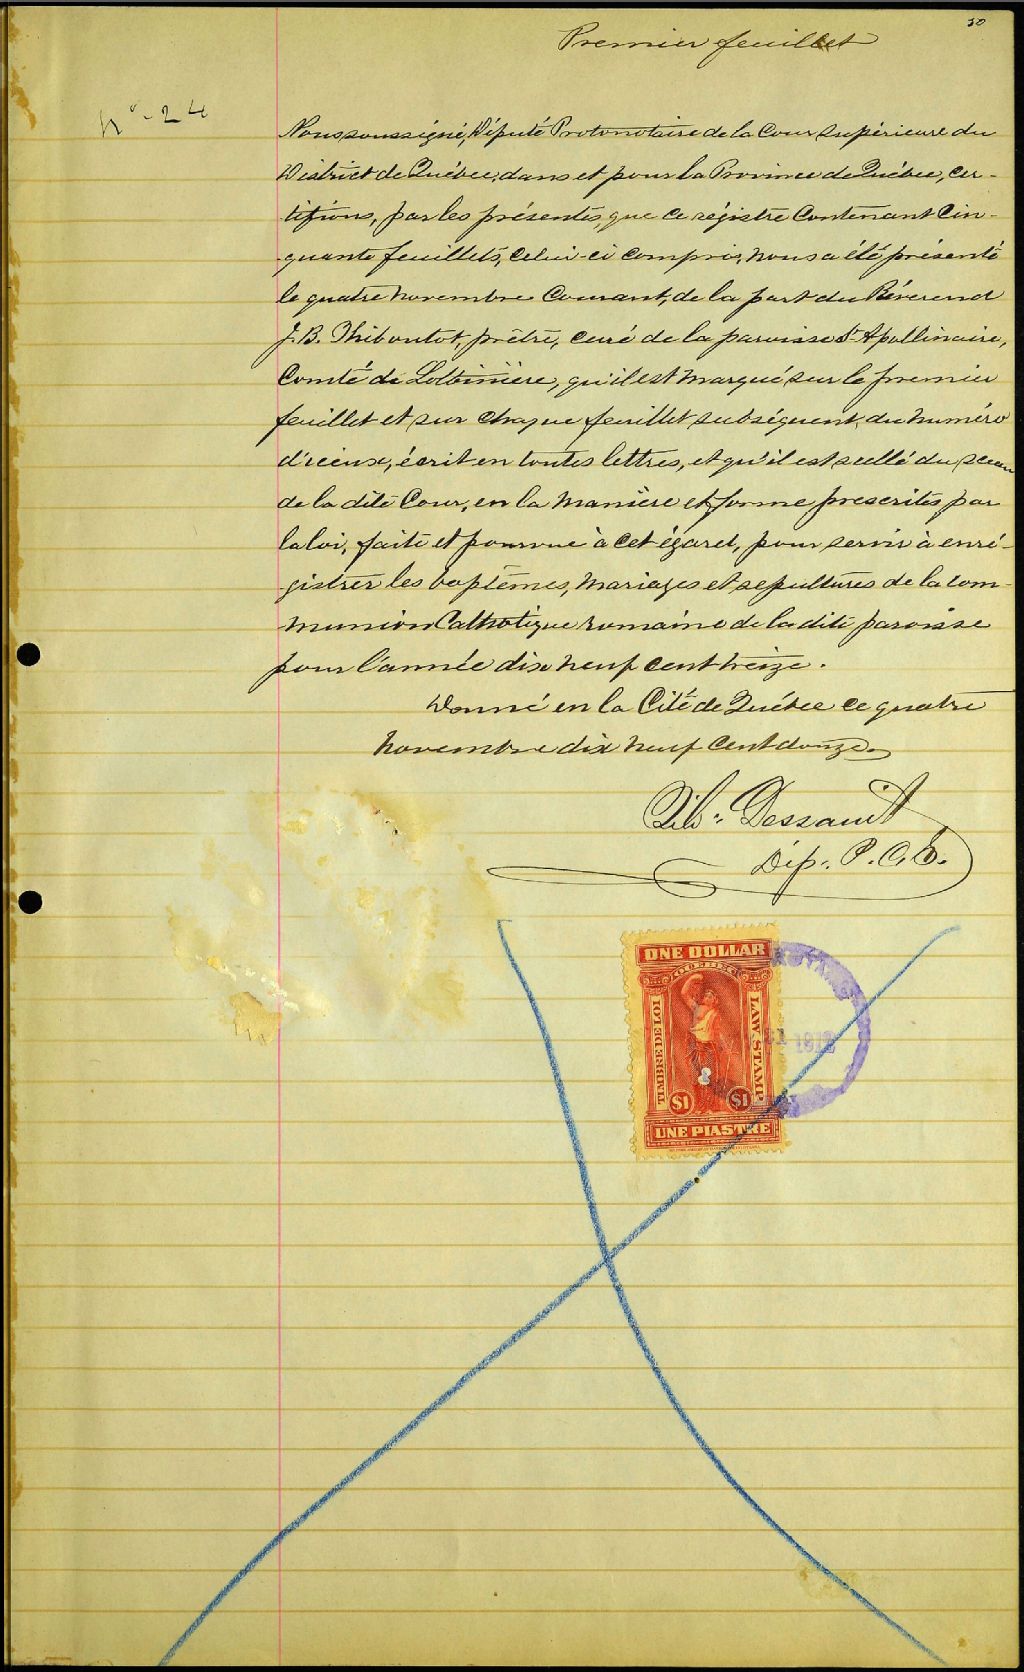 50
Premier feuillet
No. 24
Nous soussigné, Député Protonotaire de la Cour supérieure du
District de Québec, dans et pour la Province de Québec, cer-
tifions, par les présentes, que ce régistre contenant cin-
quante feuillets, celui-ci compris, nous a été présenté
le quatre novembre courant, de la part du Révérend
J. B. Thiboutot, prêtre, curé de la paroisse St Apollinaire,
Comté de Lotbinière, qu'il est marqué sur le premier
feuillet et sur chaque feuillet subséquent, du numéro
d'iceux, écrit en toutes lettres, et qu'il est scellé du sceau
de la dite Cour, en la manière et forme prescrites par
la loi, faite et pourvue à cet égard, pour servir à enré-
gistrer les baptêmes, mariages et sépultures de la com-
munion Catholique romaine de la dite paroisse
pour l'année dix neuf cent treize.
Donné en la Cité de Québec ce quatre
novembre dix neuf cent douze.
Dessault
Dép. P. C. S.
ONE DOLLAR
QUEBEC
TIMBRE DE LOI
LAW STAMP
$1 $1
UNE PIASTRE
31 1912